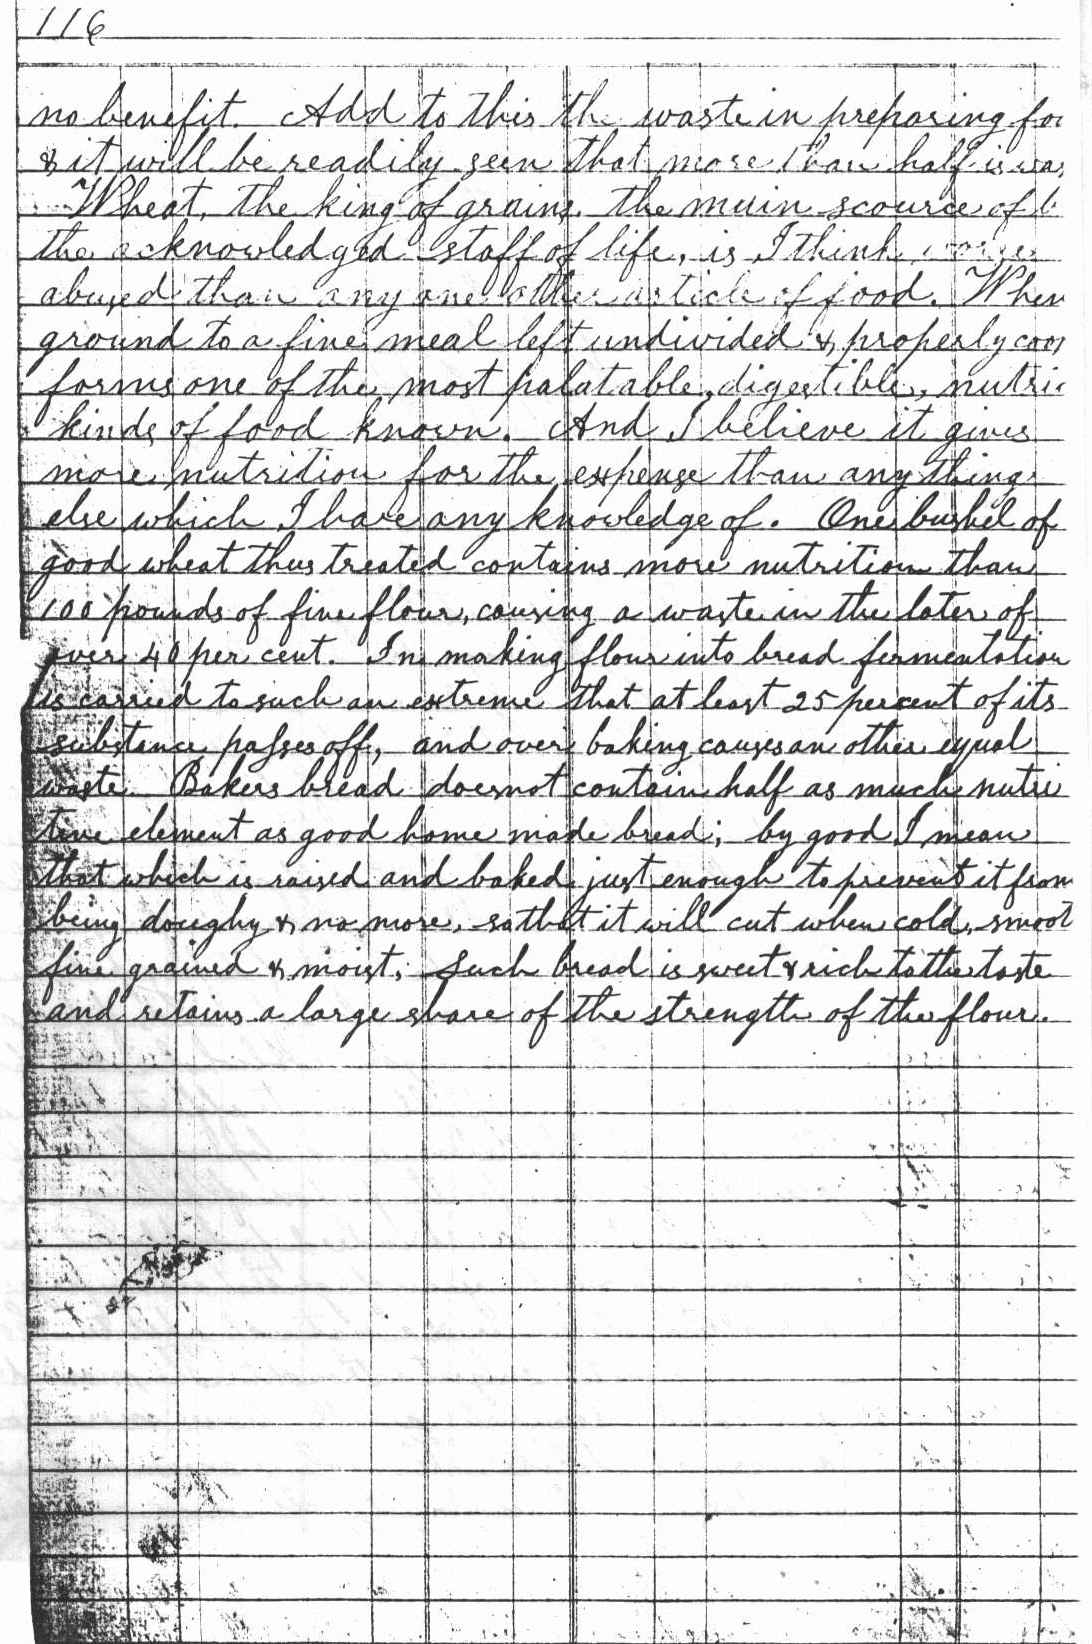 116
no benefit. Add to this the waste in preparing
& it will be readily seen that more than half is
Wheat, the king of grains, the main scource of
the acknowledged staff of life, is I think
abused than any one other article of food. When
ground to a fine meal left undivided & properly
forms one of the most palatable, digestible,
kinds of food known. And I believe it gives
more nutrition for the expense than any thing
else which I have any knowledge of. One bushel of
good wheat thus treated contains more nutrition than
100 pounds of fine flour, causing a waste in the later of
over 40 per cent. In making flour into bread fermentation
is carried to such an extreme that at least 25 percent of its
substance passes off, and over baking causes an other equal
waste. Bakers bread does not contain half as much nutri
tive element as good home made bread; by good I mean
that which is raised and baked just enough to prevent it from
being doughy & no more, so that it will cut when cold, smoot
fine grained & moist; Such bread is sweet & rich to the taste
and retains a large share of the strength of the flour.